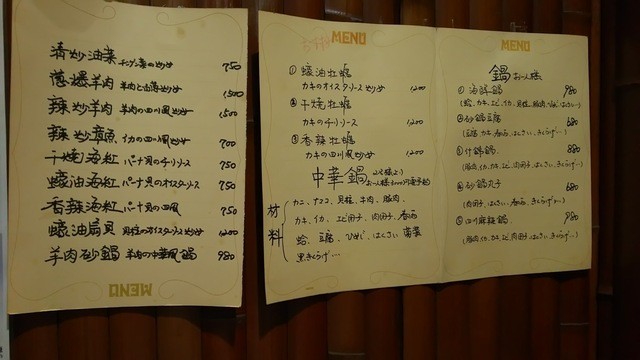 清炒油菜 チンゲン菜の炒め 750
葱爆羊肉 羊肉と白葱炒め 1,500
辣炒羊肉 羊肉の四川風炒め 1,500
辣炒章魚 イカの四川風炒め 700
干焼海紅 パーナ貝のチリソース 750
蠔油海紅 パーナ貝のオイスターソース 750
香辣海紅 パーナ貝の四風 750
蠔油扇貝 貝柱のオイスターソース炒め 1200
羊肉砂鍋 羊肉の中華風鍋 980
MENU
おすすめ MENU
① 蠔油牡蠣
カキのオイスターソース炒め 1200
② 干焼牡蠣
カキのチリソース 1200
③ 香辣牡蠣
カキの四川風炒め 1200
中華鍋
材料
カニ、ナマコ、貝柱、牛肉、豚肉、
カキ、イカ、エビ団子、肉団子、春雨
蛤、豆腐、はくさい
黒きくらげ…
MENU
鍋 お一人様
① 海鮮鍋 980
(蛤、カキ、エビ、イカ、貝柱、豚肉、はくさい…)
② 砂鍋豆腐 680
(豆腐、カキ、春雨、はくさい、きくらげ…)
③ 什錦鍋 880
(豚肉、イカ、カキ、エビ、肉団子、はくさい…)
④ 砂鍋丸子 680
(肉団子、はくさい、春雨、きくらげ…)
⑤ 四川麻辣鍋 980
(豚肉、イカ、カキ、エビ、肉団子、はくさい…)